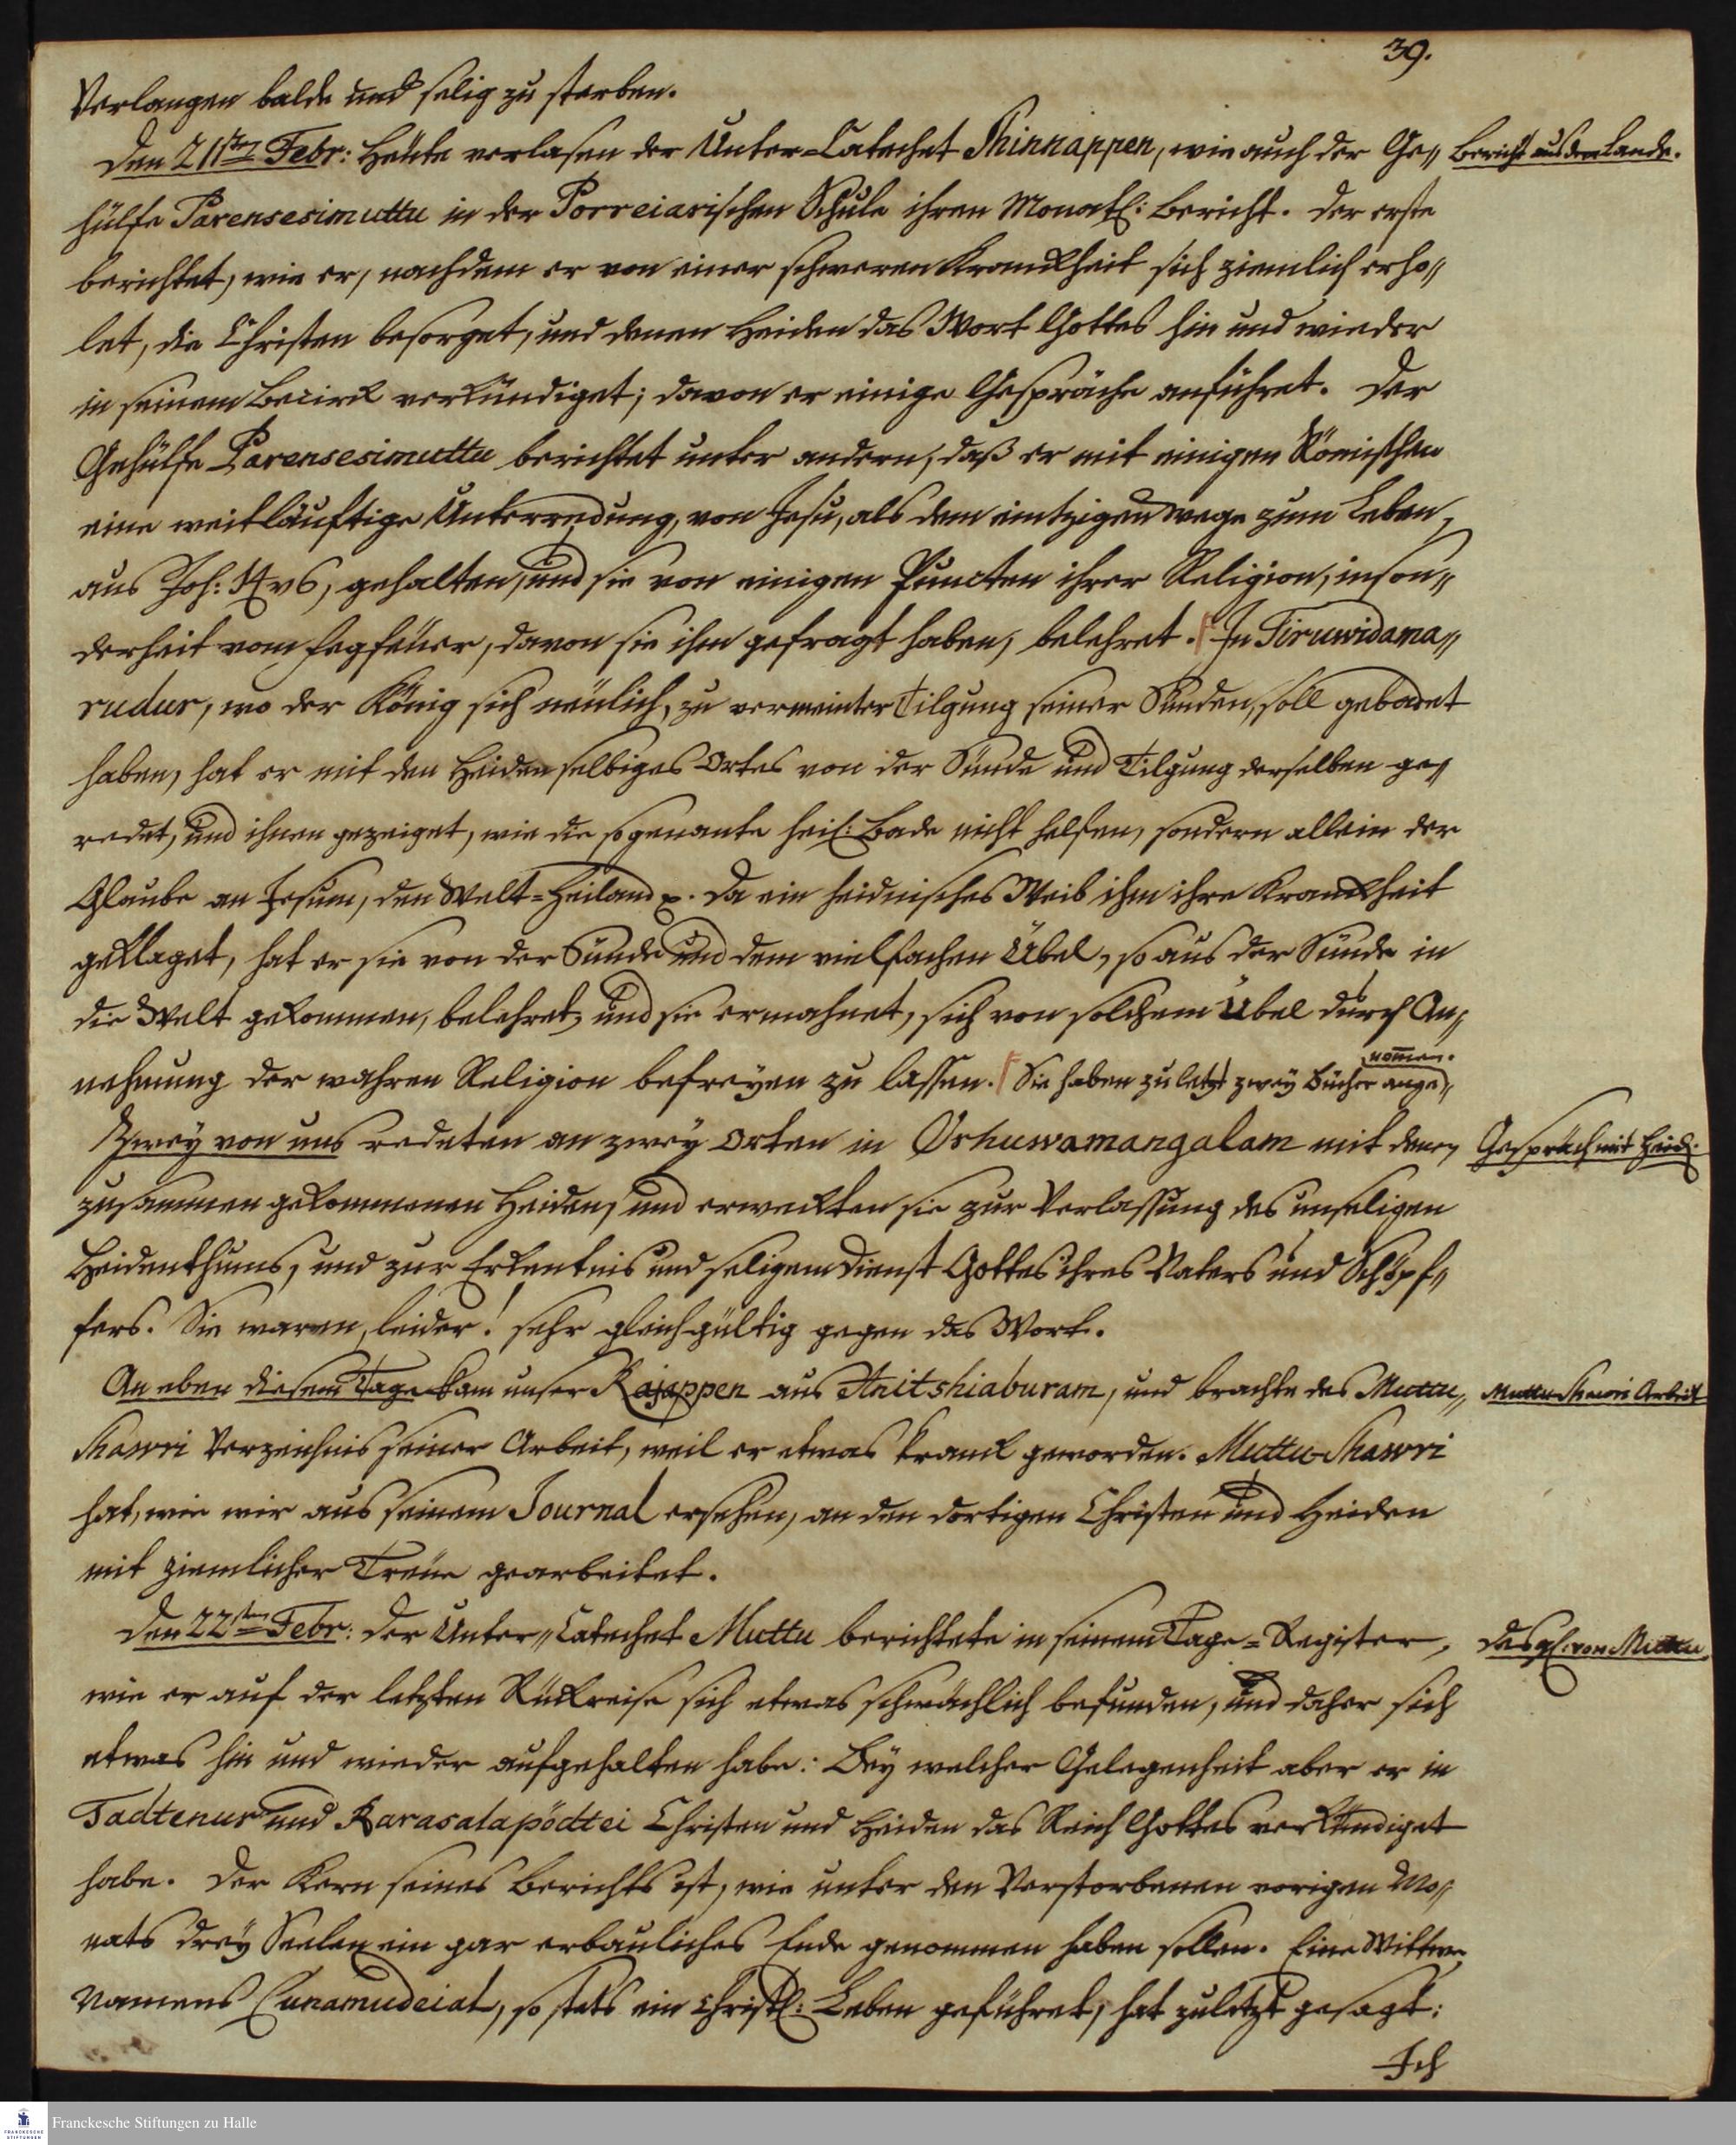 39.
Verlangen balde und selig zu sterben.
Den 21sten Febr: Heute verlasen der Unter-Catechet Shinnappen, wie auch der Ge„
Bericht aus dem Lande.
hülfe Parensesimuttu in der Porreiarischen Schule ihren Monatl: Bericht. Der erste
berichtet, wie er, nachdem er von einer schweren Kranckheit sich ziemlich erho„
let, die Christen besorget, und denen Heiden das Wort Gottes hin und wieder
in seinem Bezirck verkündiget; davon er einige Gespräche anführet. Der
Gehülfe Parensesimuttu berichtet unter andern, daß er mit einigen Römischen
eine weitläuftige Unterredung, von Jesu, als dem eintzigen Wege zum Leben,
aus Joh: 14 v6, gehalten, und sie von einigen Puncten ihrer Religion, inson„
derheit vom Fegfeuer, davon sie ihn gefragt haben, belehret. In Tiruwidama„
rudur, wo der König sich neulich, zu vermeinter Tilgung seiner Sünden, soll gebadet
haben, hat er mit den Heiden selbiges Ortes von der Sünde und Tilgung derselben ge„
redet, und ihnen gezeiget, wie die sogenante heil: Bade nicht helfen, sondern allein der
Glaube an Jesum, den Welt=Heiland p. Da ein heidnisches Weib ihm ihre Kranckheit
geklaget, hat er sie von der Sünde und dem vielfachen Übel, so aus der Sünde in
die Welt gekommen, belehret, und sie ermahnet, sich von solchem Übel durch An„
nehmung der wahren Religion befreyen zu lassen. Sie haben zuletzt zwey Bücher ange„
nom̄en.
Zwey von uns redeten an zwey Orten in Orhuwamangalam mit denen
Gespräch mit Heid:
zusammen gekommenen Heiden, und erweckten sie zur Verlassung des unseligen
Heidenthums, und zur Erkentnis und seligem Dienst Gottes ihres Vaters und Schöpf„
fers. Sie waren, leider! sehr gleichgültig gegen das Wort.
An eben diesem Tage kam unser Rajappen aus Anitshiaburam, und brachte des Muttu„
Muttu Shawri Arbeit
Shawri Verzeichnis seiner Arbeit, weil er etwas kranck geworden. Muttu Shawri
hat, wie wir aus seinem Journal ersehen, an den dortigen Christen und Heiden
mit ziemlicher Treue gearbeitet.
Den 22sten Febr: Der Unter„Catechet Muttu berichtete in seinem Tage=Register,
desgl. von Muttu
wie er auf der letzten Rückreise sich etwas schwächlich befunden, und daher sich
etwas hin und wieder aufgehalten habe: Bey welcher Gelegenheit aber er in
Tadtenur und Karasalapödtei Christen und Heiden das Reich Gottes verkündiget
habe. Der Kern seines Berichts ist, wie unter den Verstorbenen vorigen Mo„
nats drey Seelen ein gar erbauliches Ende genommen haben sollen. Eine Wittwe,
Namens Cunamudeial, so stets ein Christl: Leben geführet, hat zuletzt gesagt:
Ich
FRANCKESCHE STIFTUNGEN
Franckesche Stiftungen zu Halle